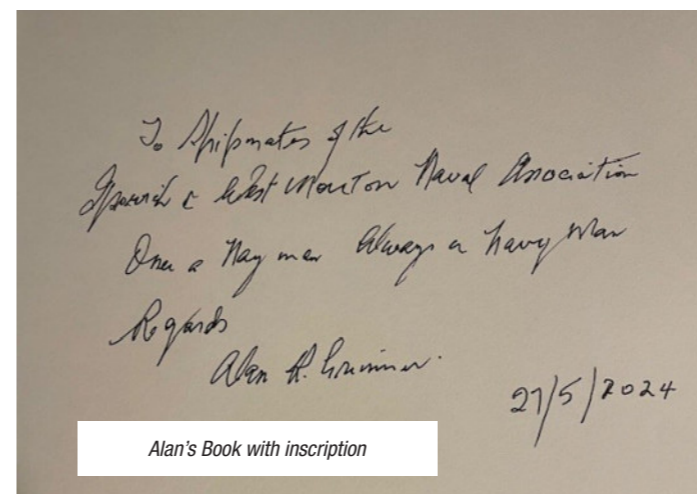 To Shipmates of the
Ipswich & West Moreton Naval Association
Once a Navy man Always a Navy Man
Regards
Alan R.
27/5/2024
Alan's Book with inscription